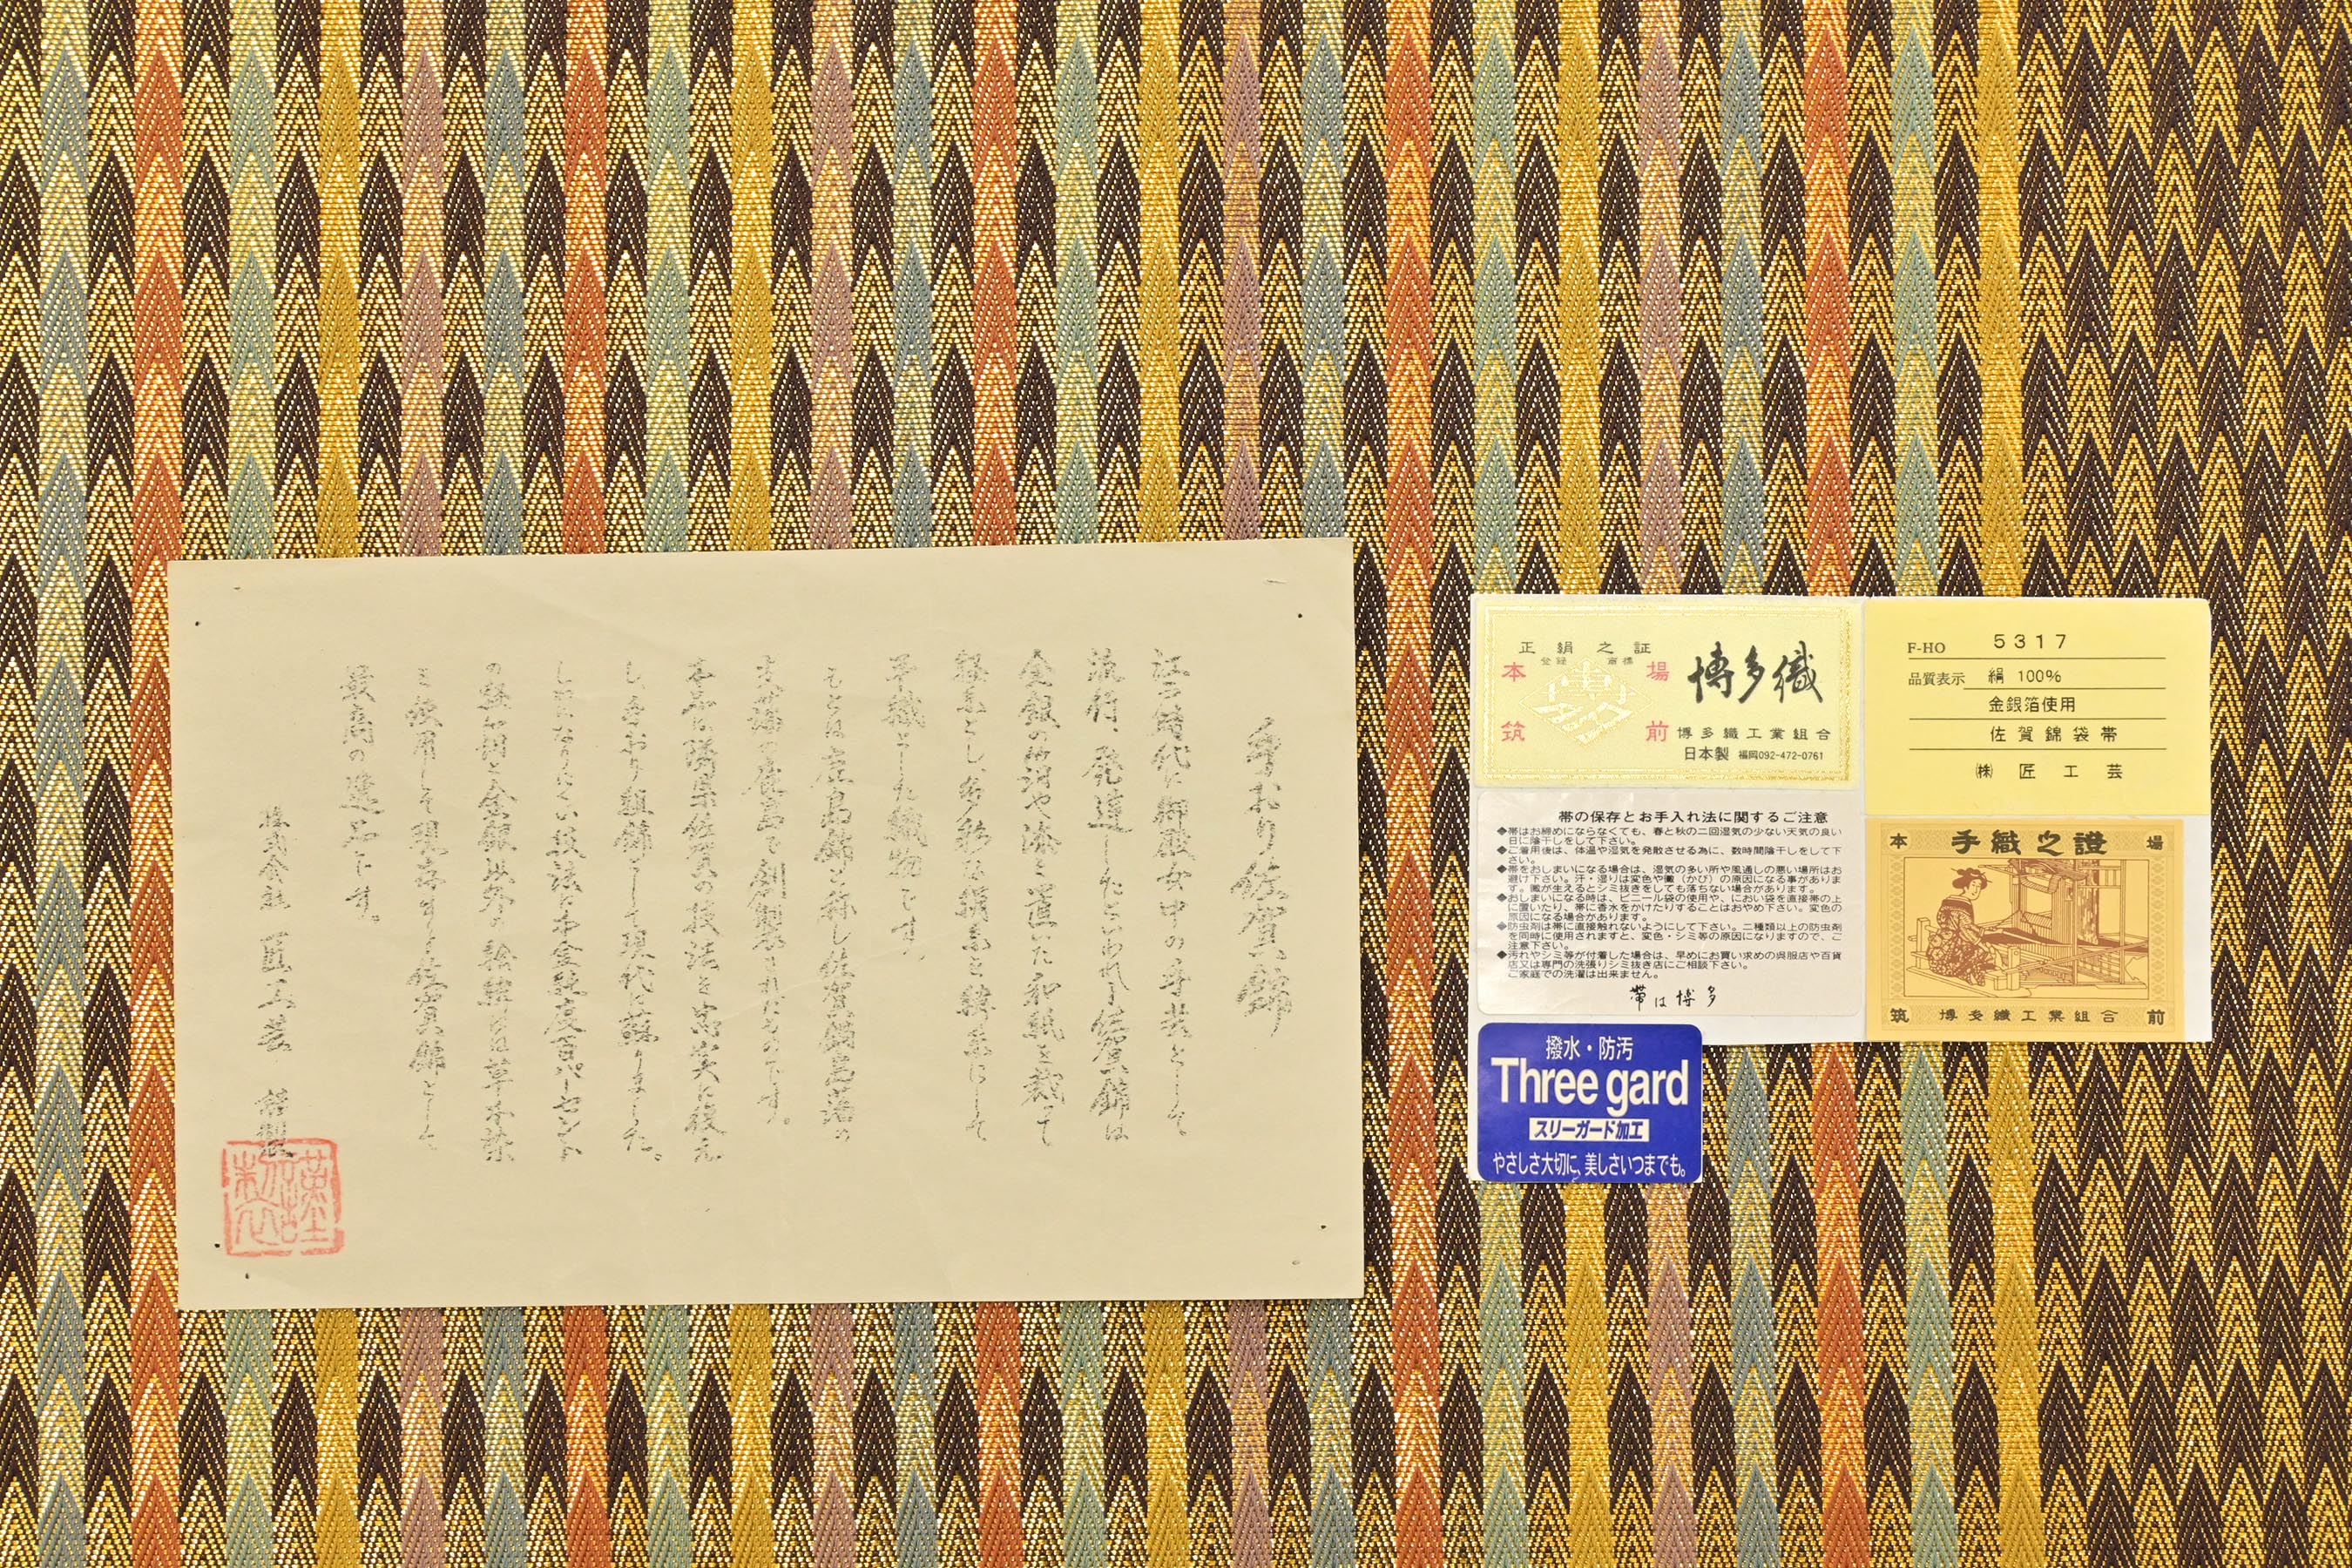 手おり佐賀錦
江戸時代に御殿女中の手芸として
流行、発達したといわれる佐賀錦は
金銀の箔や漆を置いた和紙を裁て
経糸とし、多彩な絹糸を緯糸にして
手織とした織物です。
もとは鹿島錦と称し佐賀鍋島藩の
支藩の鹿島で創製されたものです。
本品は隣県佐賀の技法を忠実に復元
し、手おり類錦として現代に蘇りました。
最高の逸品です。
株式会社 匠工芸 謹製
正絹之証
登録 商標
本場
筑前
博多織
博多織工業組合
日本製 福岡092-472-0761
F-HO 5317
品質表示 絹 100%
金銀箔使用
佐賀錦袋帯
㈱ 匠工芸
帯の保存とお手入れ法に関するご注意
◆帯はお締めにならなくても、春と秋の二回湿気の少ない天気の良い
日に陰干しをして下さい。
◆ご着用後は、体温や湿気を発散させる為に、数時間陰干しをして下
さい。
◆帯をおしまいになる場合は、湿気の多い所や風通しの悪い場所はお
避け下さい。汗・湿りは変色や黴（かび）の原因になる事がありま
す。黴が生えるとシミ抜きをしても落ちない場合があります。
◆おしまいになる時は、ビニール袋の使用や、におい袋を直接帯の上
に置いたり、帯に香水をかけたりすることはおやめ下さい。変色の
原因になる場合があります。
◆防虫剤は帯に直接触れないようにして下さい。二種類以上の防虫剤
を同時に使用されますと、変色・シミ等の原因になりますので、ご
注意下さい。
◆汚れやシミ等が付着した場合は、早めにお買い求めの呉服店や百貨
店又は専門の洗張りシミ抜き店にご相談下さい。
ご家庭での洗濯は出来ません。
帯は博多
本 手織之證 場
筑 博多織工業組合 前
撥水・防汚
Three gard
スリーガード加工
やさしさ大切に、美しさいつまでも。